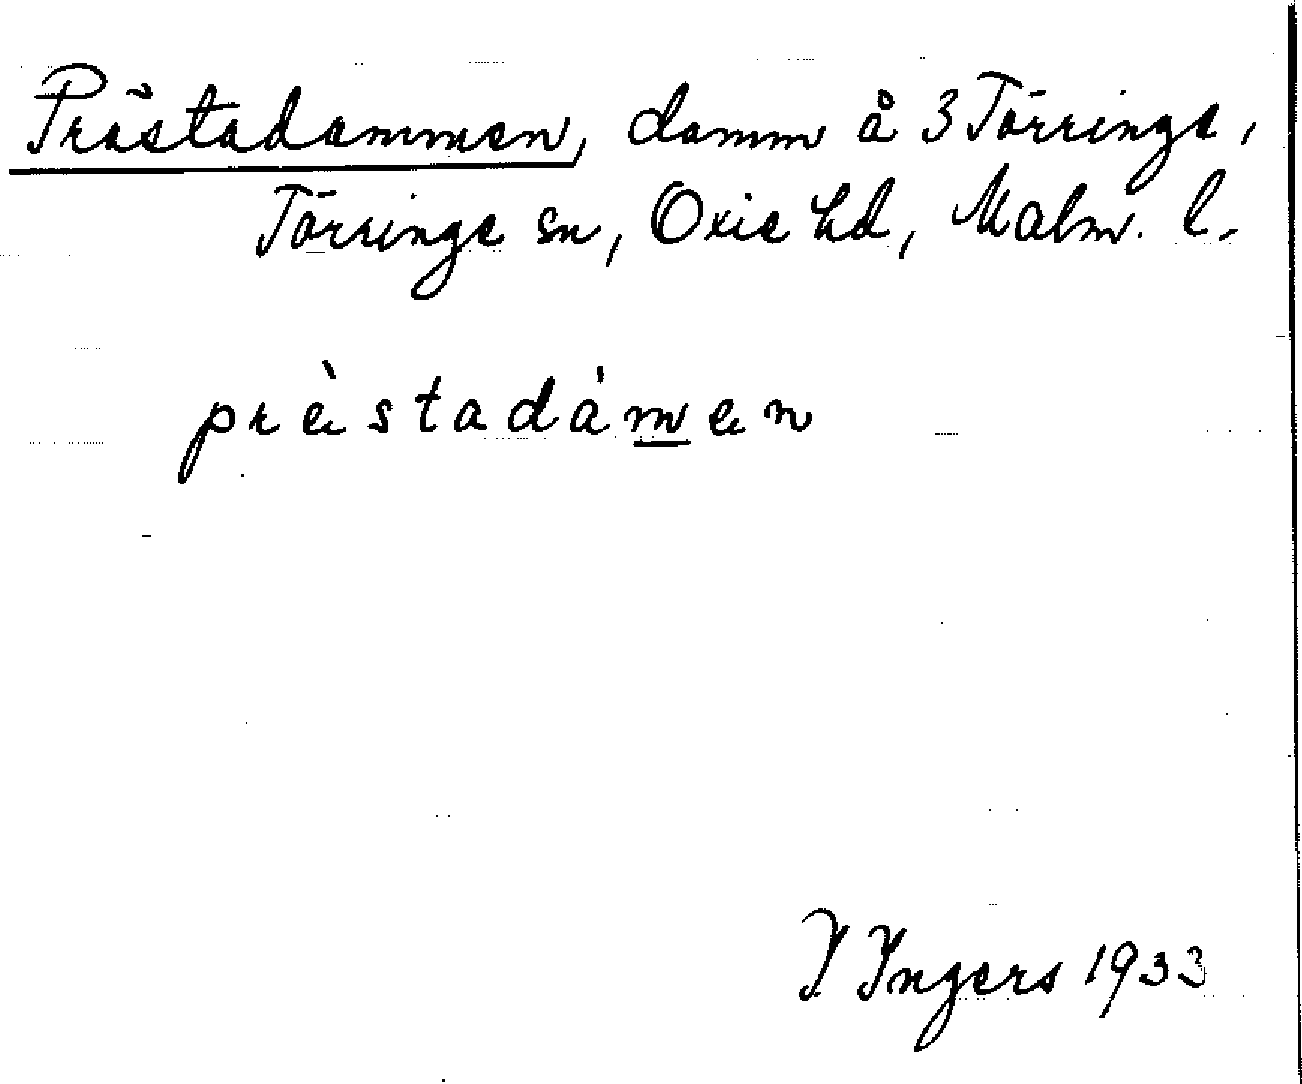 Prästadammen, damm å 3 Törringe,
Törringe sn, Oxie hd, Malm. l.
prὲstadámen
I Ingers 1933